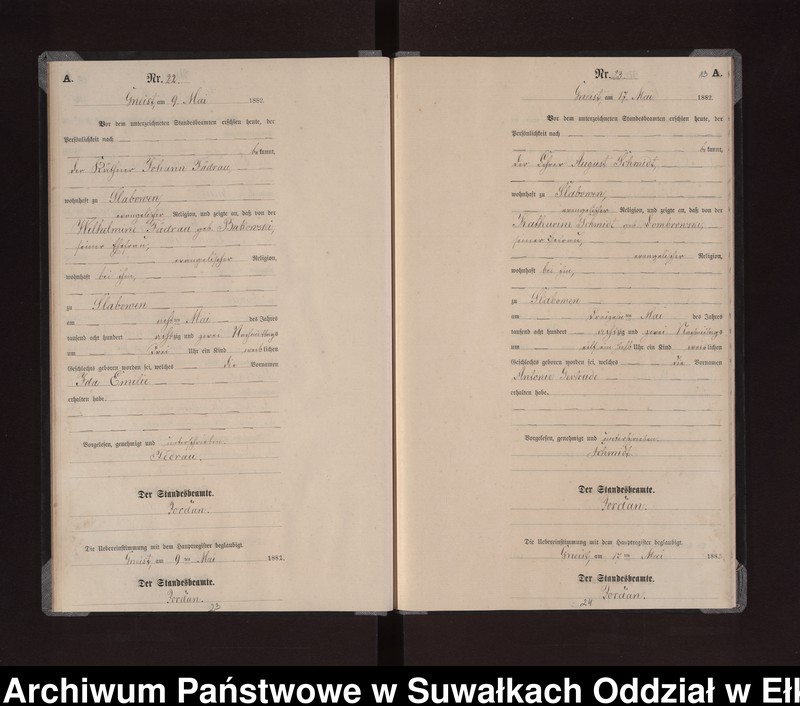 A. Nr. 22
Gneist am 9. Mai 1882.
Vor dem unterzeichneten Standesbeamten erschien heute, der
Persönlichkeit nach
bekannt,
der Käthner Johann Jädrau,
wohnhaft zu Slabowen,
evangelischer Religion, und zeigte an, daß von der
Wilhelmine Jädrau geb. Butkowski,
seiner Ehefrau,
evangelischer Religion,
wohnhaft bei ihm,
zu Slabowen
am achten Mai des Jahres
tausend acht hundert achtzig und zwei Nachmittags
um drei Uhr ein Kind weiblichen
Geschlechts geboren worden sei, welches die Vornamen
Ida Emilie
erhalten habe.
Vorgelesen, genehmigt und unterschrieben.
Jedrau.
Der Standesbeamte.
Jordan.
Die Uebereinstimmung mit dem Hauptregister beglaubigt.
Gneist, am 9ten Mai 1882.
Der Standesbeamte.
Jordan.
23
Nr. 23 13 A.
Gneist am 17. Mai 1882.
Vor dem unterzeichneten Standesbeamten erschien heute, der
Persönlichkeit nach
bekannt,
der Lehrer August Schmidt,
wohnhaft zu Slabowen,
evangelischer Religion, und zeigte an, daß von der
Katharine Schmidt geb. Dombrowski,
seiner Ehefrau,
evangelischer Religion,
wohnhaft bei ihm,
zu Slabowen
am Mai des Jahres
tausend acht hundert achtzig und zwei Nachmittags
um Uhr ein Kind weiblichen
Geschlechts geboren worden sei, welches die Vornamen
Antonie Gertrude
erhalten habe.
Vorgelesen, genehmigt und unterschrieben.
Schmidt
Der Standesbeamte.
Jordan.
Die Uebereinstimmung mit dem Hauptregister beglaubigt.
Gneist, am 17ten Mai 1882
Der Standesbeamte.
Jordan.
24
Archiwum Państwowe w Suwałkach Oddział w Ełk